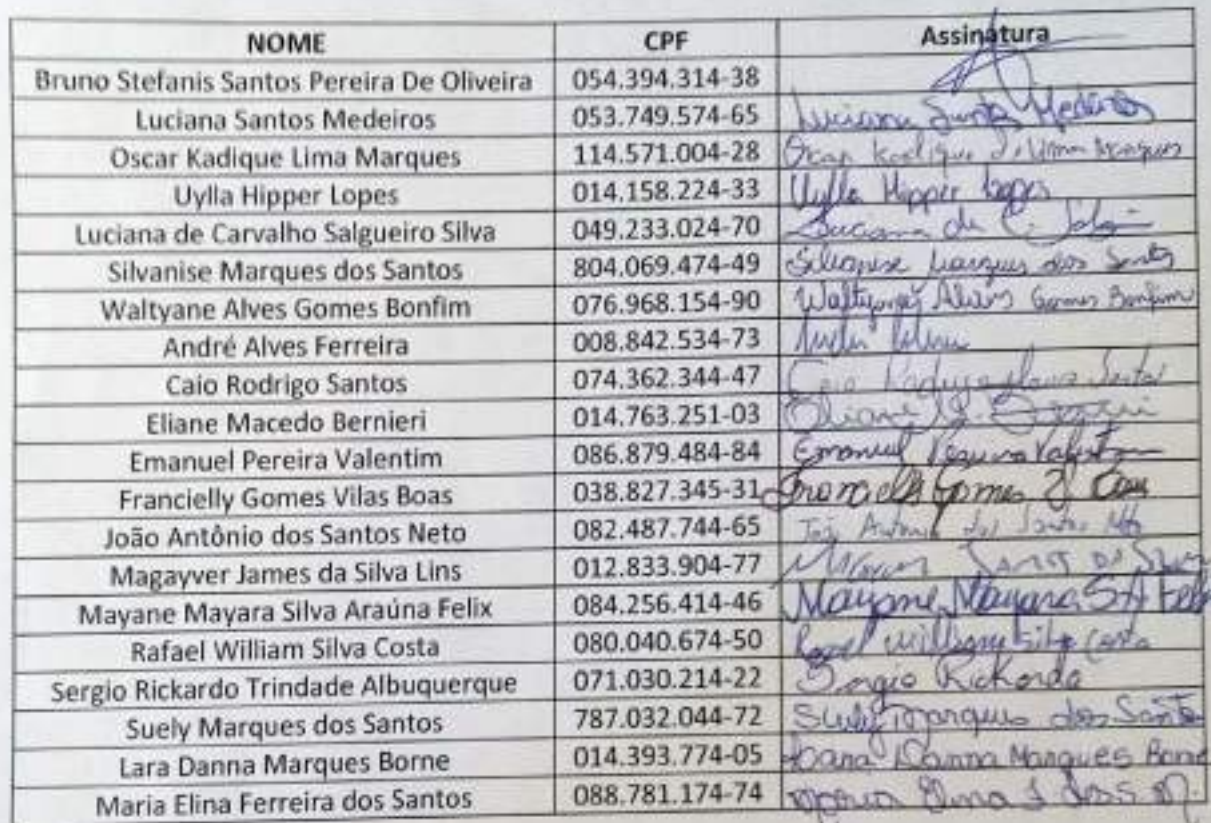 NOME CPF Assinatura
Bruno Stefanis Santos Pereira De Oliveira 054.394.314-38
Luciana Santos Medeiros 053.749.574-65 Luciana Santos Medeiros
Oscar Kadique Lima Marques 114.571.004-28 Oscar Kadique de Lima Marques
Uylla Hipper Lopes 014.158.224-33 Uylla Hipper Lopes
Luciana de Carvalho Salgueiro Silva 049.233.024-70 Luciana de C.
Silvanise Marques dos Santos 804.069.474-49 Silvanise Marques dos Santos
Waltyane Alves Gomes Bonfim 076.968.154-90 Waltyane Alves Gomes Bonfim
André Alves Ferreira 008.842.534-73
Caio Rodrigo Santos 074.362.344-47 Caio Santos
Eliane Macedo Bernieri 014.763.251-03 Eliane
Emanuel Pereira Valentim 086.879.484-84 Emanuel Pereira Valentim
Francielly Gomes Vilas Boas 038.827.345-31 Gomes
João Antônio dos Santos Neto 082.487.744-65 João Antonio dos Santos Neto
Magayver James da Silva Lins 012.833.904-77 James da
Mayane Mayara Silva Araúna Felix 084.256.414-46 Mayane Mayara S A Felix
Rafael William Silva Costa 080.040.674-50 Rafael William Silva Costa
Sergio Rickardo Trindade Albuquerque 071.030.214-22 Sergio Rickardo
Suely Marques dos Santos 787.032.044-72 Suely Marques dos Santos
Lara Danna Marques Borne 014.393.774-05 Danna Marques Borne
Maria Elina Ferreira dos Santos 088.781.174-74 Maria Elina